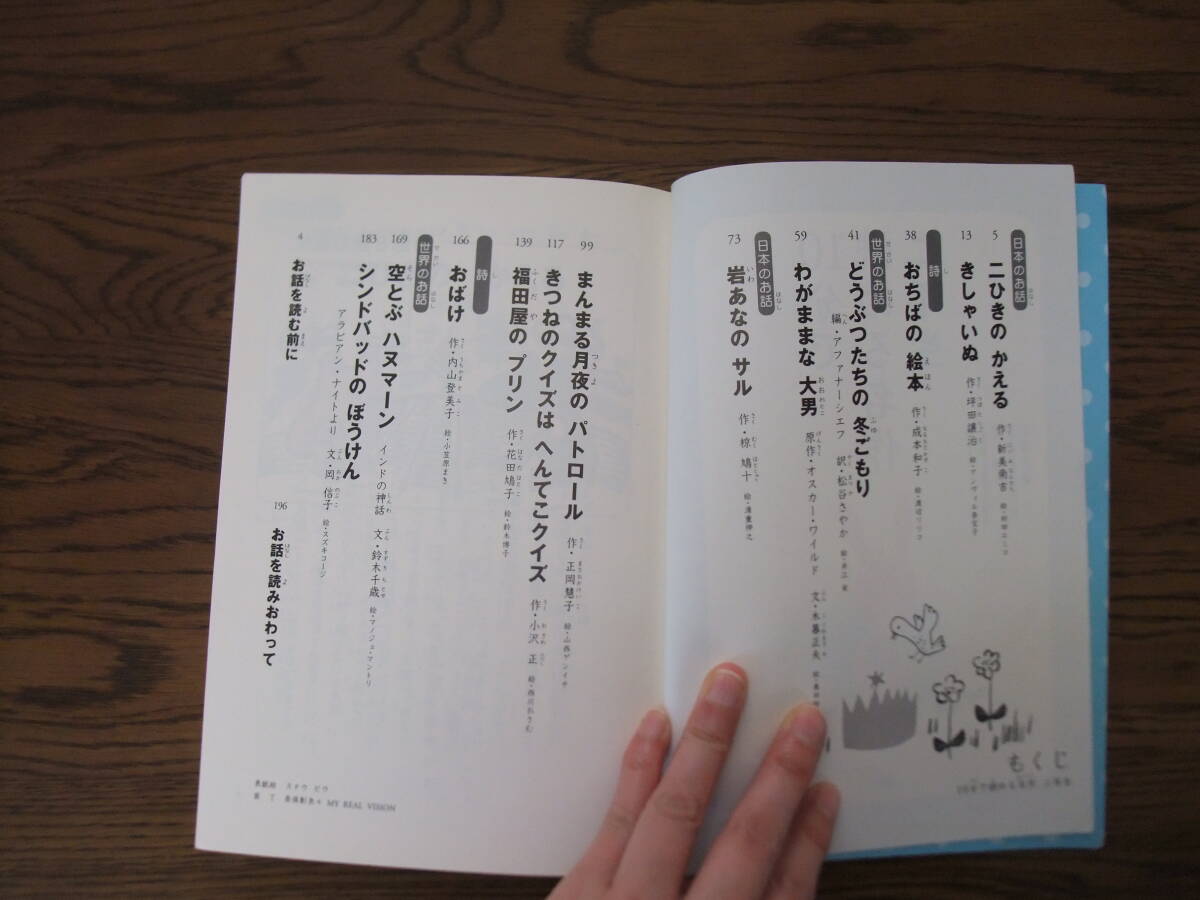 もくじ
日本のお話
5 二ひきの かえる 作・新美南吉
13 きしゃいぬ 作・坪田譲治
詩
38 おちばの 絵本 作・成本和子
世界のお話
41 どうぶつたちの 冬ごもり
編・アファナーシエフ 訳・松谷さやか
59 わがままな 大男 原作・オスカー・ワイルド 文・木暮正夫
日本のお話
73 岩あなの サル 作・椋 鳩十
99 まんまる月夜の パトロール 作・正岡慧子 絵・山西ゲンイチ
117 きつねのクイズは へんてこクイズ 作・小沢 正
139 福田屋の プリン 作・花田鳩子 絵・鈴木博子
詩
166 おばけ 作・内山登美子 絵・小笠原まき
世界のお話
169 空とぶ ハヌマーン インドの神話 文・鈴木千歳 絵・マノジェ・マントリ
183 シンドバッドの ぼうけん
アラビアン・ナイトより 文・岡 信子 絵・スズキコージ
4 お話を読む前に
196 お話を読みおわって
MY REAL VISION